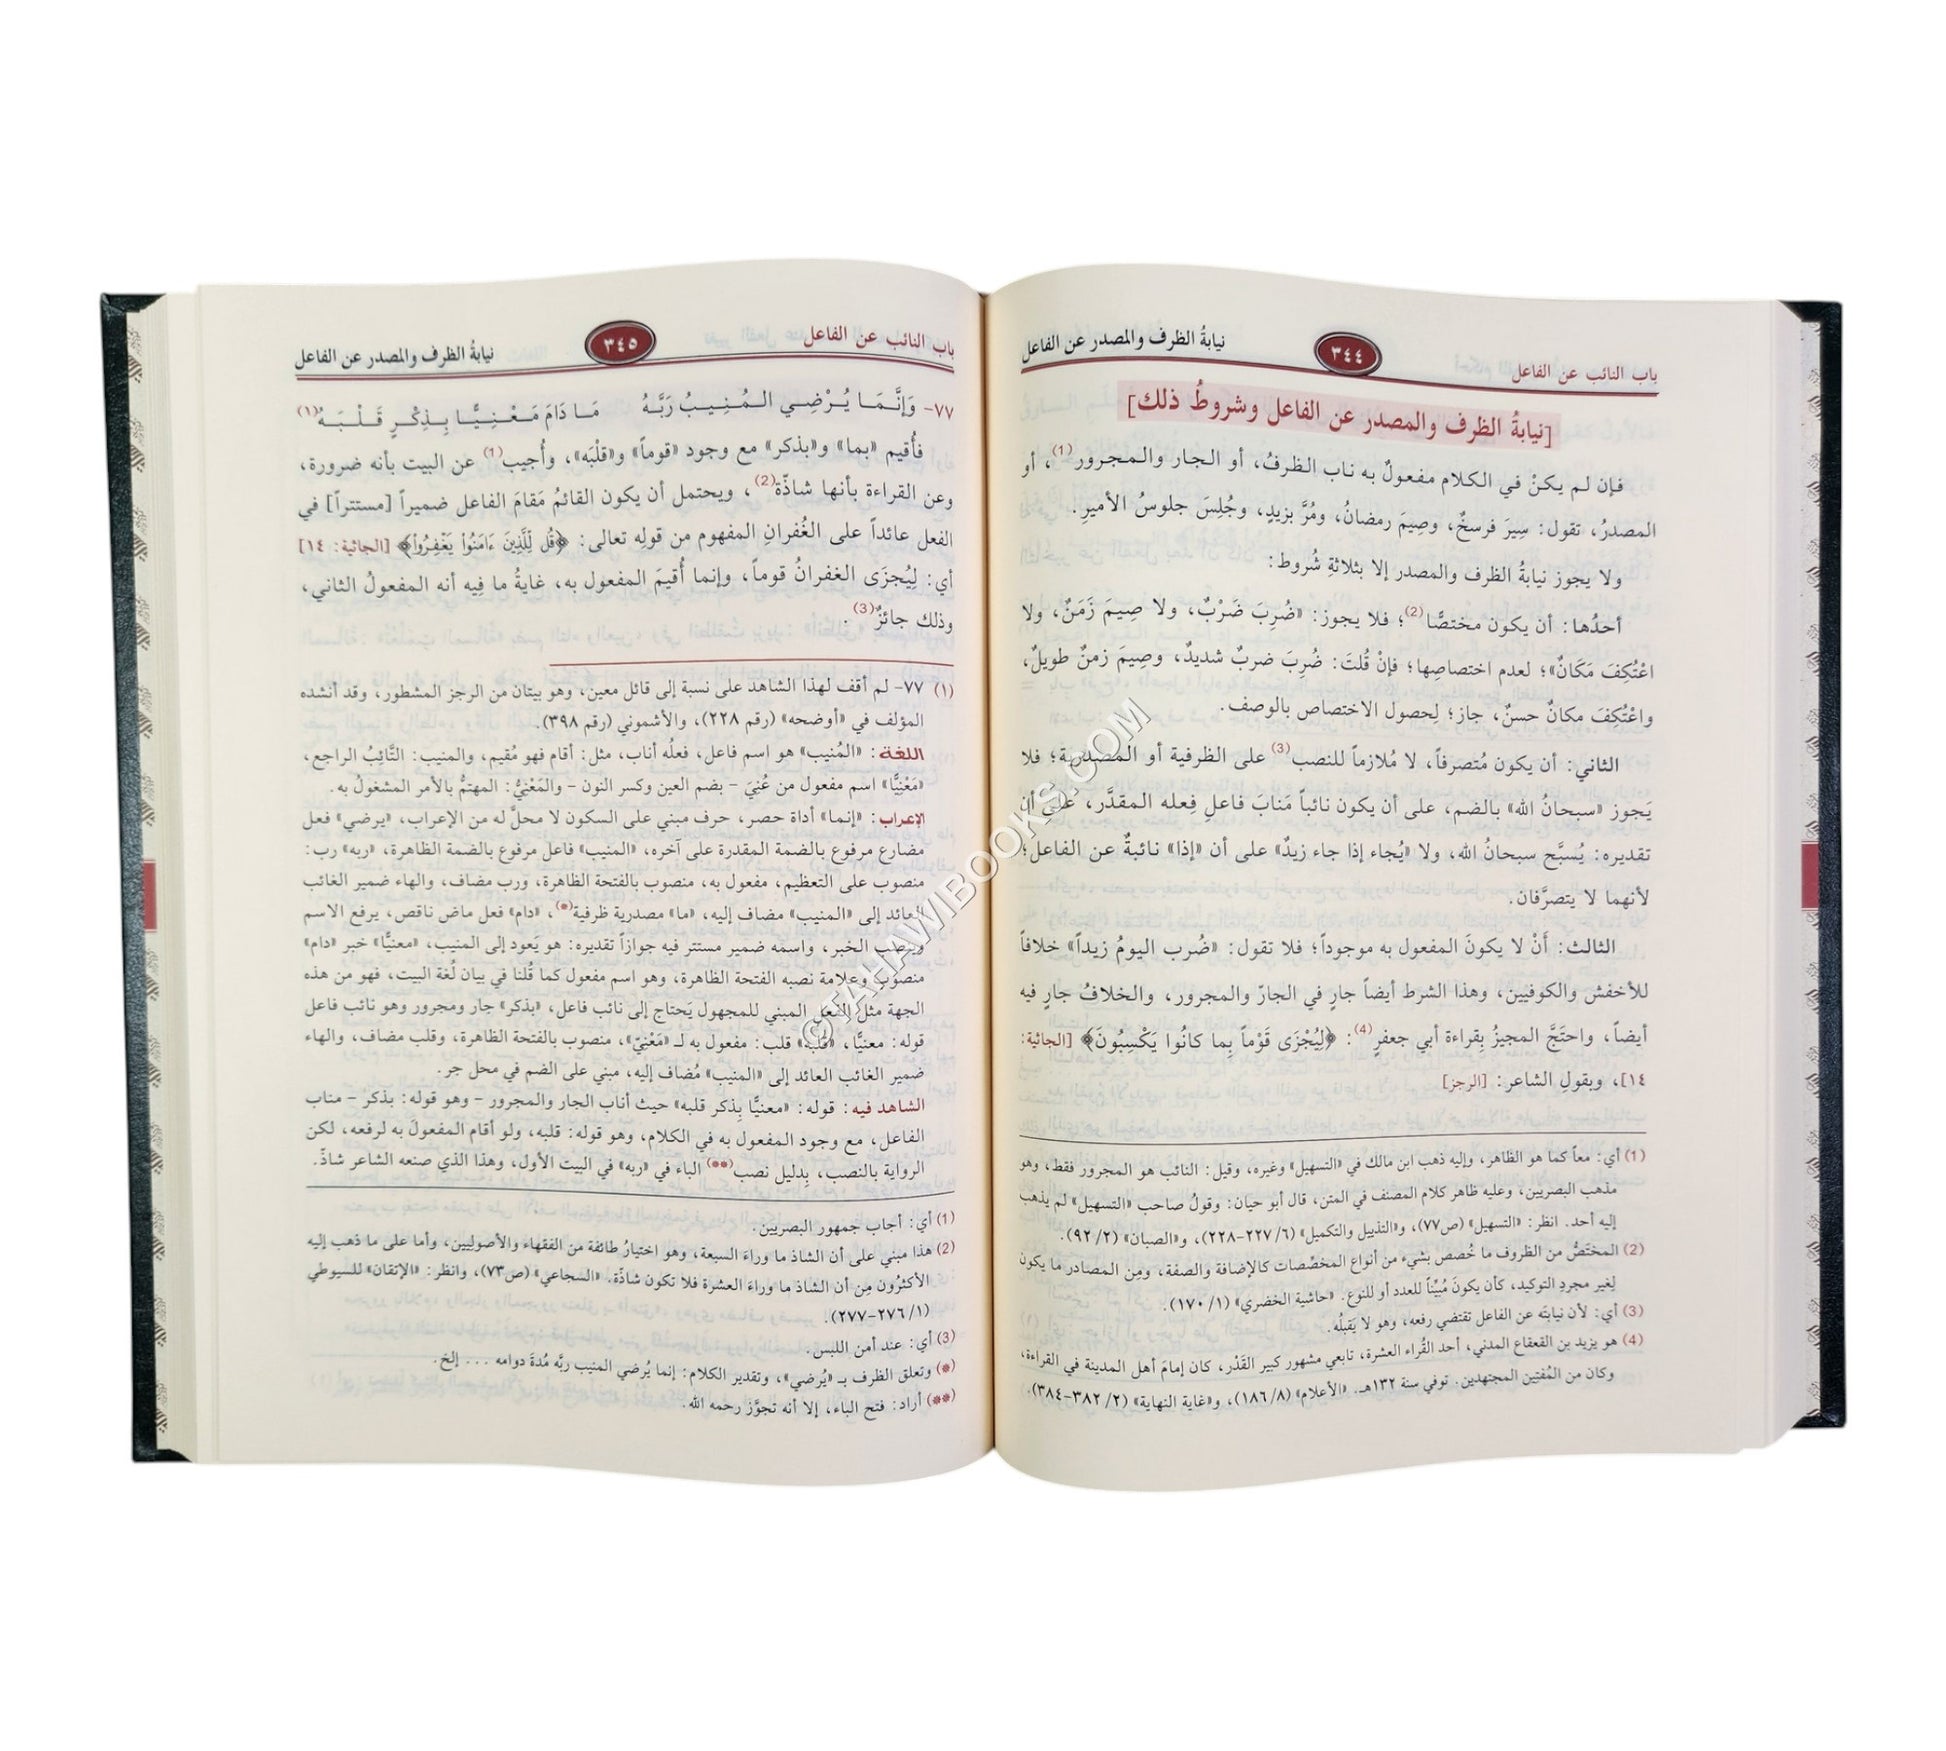 باب النائب عن الفاعل ٣٤٤ نيابةُ الظرف والمصدر عن الفاعل
[نيابةُ الظرف والمصدر عن الفاعل وشروطُ ذلك]
فإن لم يكنْ في الكلام مفعولٌ به ناب الظرفُ، أو الجار والمجرور(1)، أو
المصدرُ، تقول: سِيرَ فرسخٌ، وصِيمَ رمضانُ، ومُرَّ بزيدٍ، وجُلِسَ جلوسُ الأميرِ.
ولا يجوز نيابةُ الظرف والمصدر إلا بثلاثةِ شُروط:
أحدُها: أن يكون مختصًّا(2)؛ فلا يجوز: «ضُرِبَ ضَرْبٌ، ولا صِيمَ زَمَنٌ، ولا
اعْتُكِفَ مَكَانٌ»؛ لعدم اختصاصِها؛ فإنْ قُلتَ: ضُرِبَ ضربٌ شديدٌ، وصِيمَ زمنٌ طويلٌ،
واعْتُكِفَ مكانٌ حسنٌ، جاز؛ لِحصول الاختصاص بالوصف.
الثاني: أن يكون مُتصرفاً، لا مُلازماً للنصب(3) على الظرفية أو المصدرية؛ فلا
يَجوز «سبحانُ الله» بالضم، على أن يكون نائباً مَنابَ فاعلِ فِعله المقدَّر، على أن
تقديره: يُسبَّح سبحانُ الله، ولا «يُجاء إذا جاء زيدٌ» على أن «إذا» نائبةٌ عن الفاعل؛
لأنهما لا يتصرَّفان.
الثالث: أَنْ لا يكونَ المفعول به موجوداً؛ فلا تقول: «ضُرب اليومُ زيداً» خلافاً
للأخفش والكوفيين، وهذا الشرط أيضاً جارٍ في الجارّ والمجرور، والخلافُ جارٍ فيه
أيضاً، واحتَجَّ المجيزُ بِقراءة أبي جعفرٍ(4): ﴿لِيُجْزَى قَوْماً بِما كانُوا يَكْسِبُونَ﴾ [الجاثية:
١٤]، وبقولِ الشاعر: [الرجز]
(1) أي: معاً كما هو الظاهر، وإليه ذهب ابن مالك في «التسهيل» وغيره، وقيل: النائب هو المجرور فقط، وهو
مذهب البصريين، وعليه ظاهر كلام المصنف في المتن، قال أبو حيان: وقولُ صاحب «التسهيل» لم يذهب
إليه أحد. انظر: «التسهيل» (ص٧٧)، و«التذييل والتكميل» (٦/ ٢٢٧-٢٢٨)، و«الصبان» (٢/ ٩٢).
(2) المختَصُّ من الظروف ما خُصص بشيء من أنواع المخصِّصات كالإضافة والصفة، ومِن المصادر ما يكون
لِغير مجردِ التوكيد، كأن يكونَ مُبيِّناً للعدد أو للنوع. «حاشية الخضري» (١/ ١٧٠).
(3) أي: لأن نيابتَه عن الفاعل تقتضي رفعه، وهو لا يَقبلُه.
(4) هو يزيد بن القعقاع المدني، أحد القُراء العشرة، تابعي مشهور كبير القَدْر، كان إمامَ أهل المدينة في القراءة،
وكان من المُفتِين المجتهدين. توفي سنة ١٣٢هـ. «الأعلام» (٨/ ١٨٦)، و«غاية النهاية» (٢/ ٣٨٢-٣٨٤).
باب النائب عن الفاعل ٣٤٥ نيابةُ الظرف والمصدر عن الفاعل
٧٧- وَإِنَّمَا يُرْضِي الـمُنِيبُ رَبَّهُ مَا دَامَ مَعْنِيًّا بِذِكْرٍ قَلْبَهُ(١)
فأُقيم «بما» و«بذكر» مع وجود «قوماً» و«قلْبَه»، وأُجيب(1) عن البيت بأنه ضرورة،
وعن القراءة بأنها شاذّة(2)، ويحتمل أن يكون القائمُ مَقامَ الفاعل ضميراً [مستتراً] في
الفعل عائداً على الغُفرانِ المفهوم من قولِه تعالى: ﴿قُل لِّلَّذِينَ ءَامَنُوا۟ يَغْفِرُوا۟﴾ [الجاثية: ١٤]
أي: لِيُجزَى الغفرانُ قوماً، وإنما أُقيمَ المفعول به، غايةُ ما فِيه أنه المفعولُ الثاني،
وذلك جائزٌ(3).
(١) ٧٧- لم أقف لهذا الشاهد على نسبة إلى قائل معين، وهو بيتان من الرجز المشطور، وقد أنشده
المؤلف في «أوضحه» (رقم ٢٢٨)، والأشموني (رقم ٣٩٨).
اللغة: «المُنيب» هو اسم فاعل، فعلُه أناب، مثل: أقام فهو مُقيم، والمنيب: التَّائِبُ الراجع،
«مَعْنِيًّا» اسم مفعول من عُنِيَ - بضم العين وكسر النون - والمَعْنِيُّ: المهتمُّ بالأمر المشغولُ به.
الإعراب: «إنما» أداة حصر، حرف مبني على السكون لا محلَّ له من الإعراب، «يرضي» فعل
مضارع مرفوع بالضمة المقدرة على آخره، «المنيب» فاعل مرفوع بالضمة الظاهرة، «ربه» رب:
منصوب على التعظيم، مفعول به، منصوب بالفتحة الظاهرة، ورب مضاف، والهاء ضمير الغائب
العائد إلى «المنيب» مضاف إليه، «ما» مصدرية ظرفية(*)، «دام» فعل ماض ناقص، يرفع الاسم
وينصب الخبر، واسمه ضمير مستتر فيه جوازاً تقديره: هو يَعود إلى المنيب، «معنيًّا» خبر «دام»
منصوب وعلامة نصبه الفتحة الظاهرة، وهو اسم مفعول كما قُلنا في بيان لُغة البيت، فهو من هذه
الجهة مثل الفعل المبني للمجهول يَحتاج إلى نائب فاعل، «بذكر» جار ومجرور وهو نائب فاعل
قوله: معنيًّا، «قلبه» قلب: مفعول به لـ «مَعْنِيّ»، منصوب بالفتحة الظاهرة، وقلب مضاف، والهاء
ضمير الغائب العائد إلى «المنيب» مُضاف إليه، مبني على الضم في محل جر.
الشاهد فيه: قوله: «معنيًّا بِذكر قلبه» حيث أناب الجار والمجرور - وهو قوله: بذكر - مناب
الفاعل، مع وجود المفعول به في الكلام، وهو قوله: قلبه، ولو أقام المفعولَ به لرفعه، لكن
الرواية بالنصب، بِدليل نصب(**) الباء في «ربه» في البيت الأول، وهذا الذي صنعه الشاعر شاذّ.
(1) أي: أجاب جمهور البصريين.
(2) هذا مبني على أن الشاذ ما وراءَ السبعة، وهو اختيارُ طائفة من الفقهاء والأصولِيين، وأما على ما ذهب إليه
الأكثرُون مِن أن الشاذ ما وراءَ العشرة فلا تكون شاذّة. «السجاعي» (ص٧٣)، وانظر: «الإتقان» للسيوطي
(١/ ٢٧٦-٢٧٧).
(3) أي: عند أمن اللبس.
(*) وتعلق الظرف بـ «يُرضي»، وتقدير الكلام: إنما يُرضي المنيب ربَّه مُدةَ دوامه ... إلخ.
(**) أراد: فتح الباء، إلا أنه تجوَّز رحمه الله.
© TAHAWIBOOKS.COM